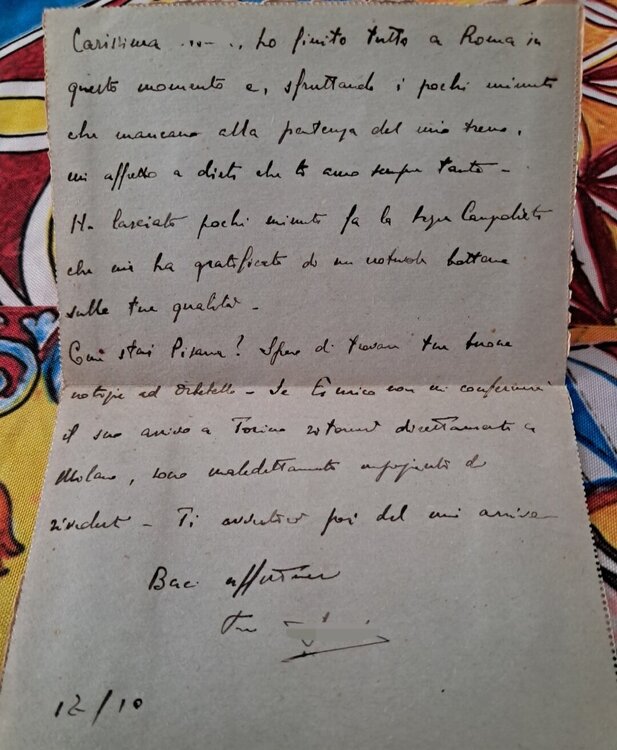 Carissima ho finito tutto a Roma in
questo momento e, sfruttando i pochi minuti
che mancano alla partenza del mio treno,
mi affretto a dirti che ti amo sempre tanto -
Ho lasciato pochi minuti fa la
che mi ha gratificato di un notevole bottone
sulle tue qualità -
Come stai Pisana? Spero di trovare tue buone
notizie ad Orbetello - Se Enrico non mi confermerà
il suo arrivo a Torino ritornerò direttamente a
Milano, sono maledettamente impaziente di
rivederti - Ti avvertirò poi del mio arrivo
Baci
Tuo
12/10